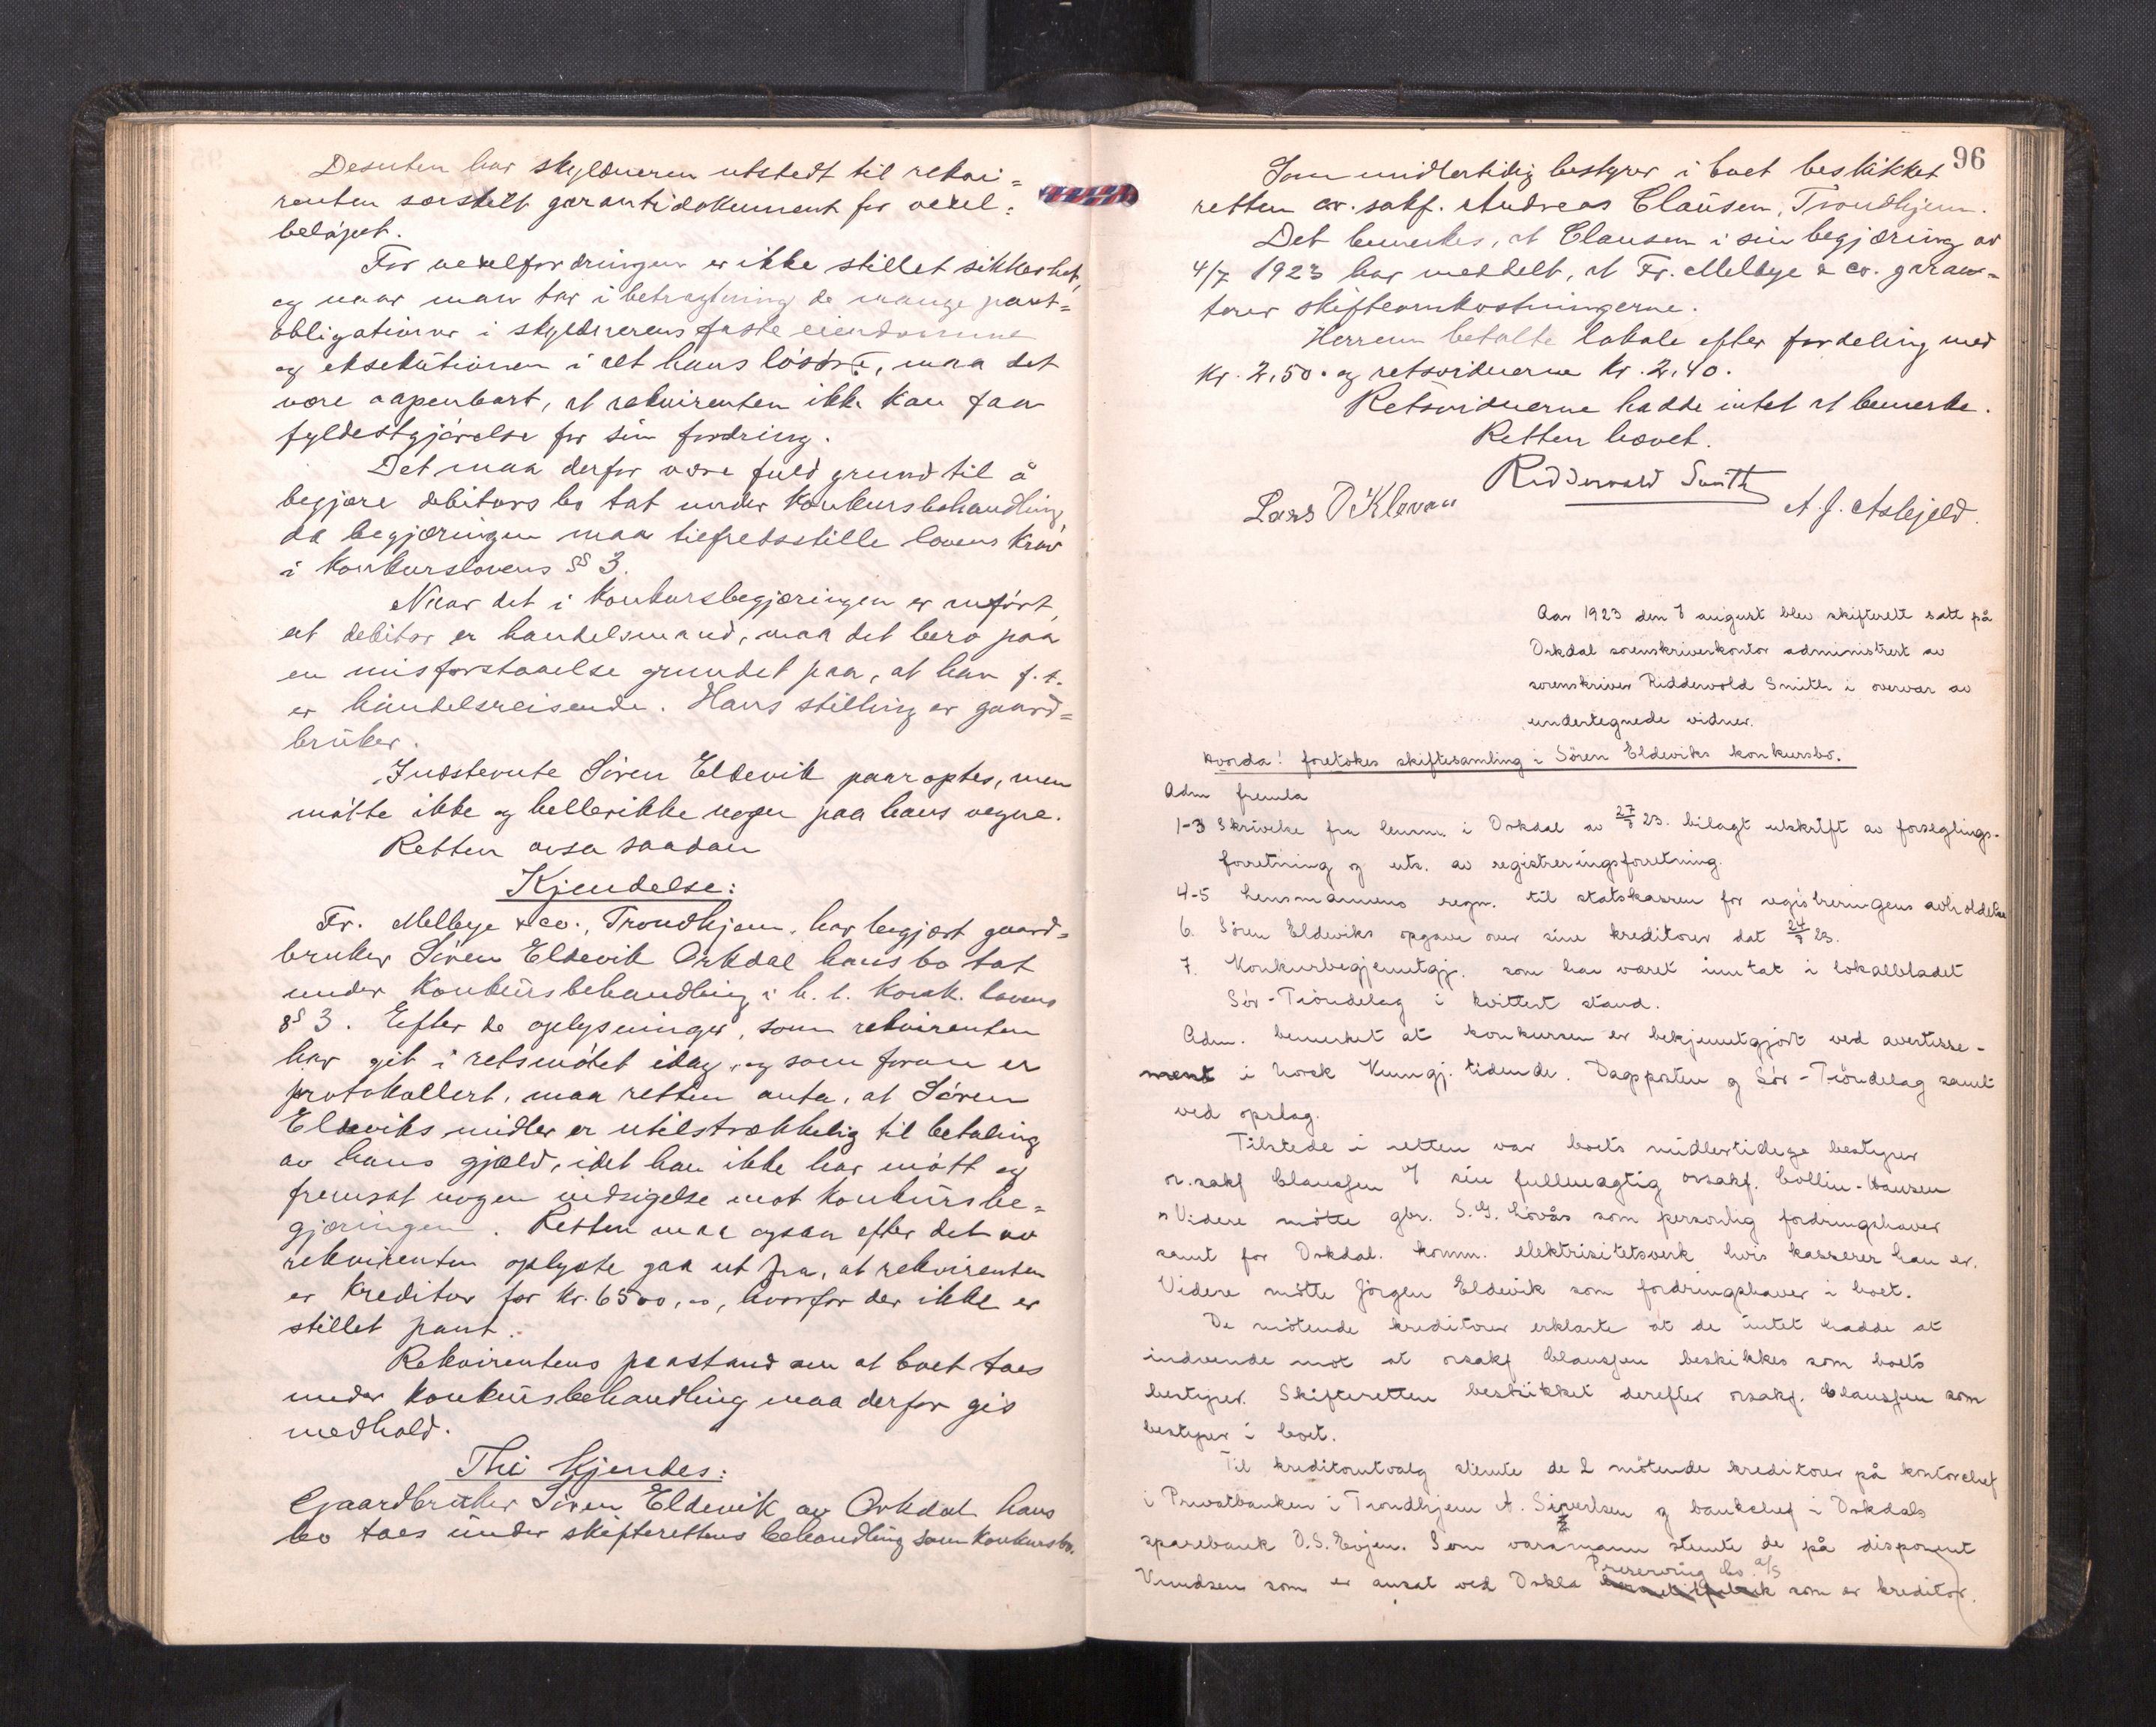 Desuten har skyldneren utstedt til rekvi=
renten særskilt garantidokument for vexel=
beløpet.
For vexelfordringen er ikke stillet sikkerhet,
og naar man tar i betragtning de mange pant=
obligationer i skyldnerens faste eiendomme
og eksekutionen i alt hans løsøre, maa det
være aapenbart, at rekvirenten ikke kan faa
fyldestgjørelse for sin fordring.
Det maa derfor være fuld grund til å
begjære debitors bo tat under konkursbehandling,
da begjæringen maa tilfredsstille lovens krav
i konkurslovens §§ 3.
Naar det i konkursbegjæringen er anført,
at debitor er handelsmand, maa det bero paa
en misforstaaelse grundet paa, at han f. t.
er handelsreisende. Hans stilling er gaard=
bruker.
Indstevnte Søren Eldevik paaroptes, men
møtte ikke og heller ikke nogen paa hans vegne.
Retten avsa saadan
Kjendelse:
Fr. Melbye & co., Trondhjem, har begjært gaard=
bruker Søren Eldevik Orkdal hans bo tat
under konkursbehandling i h. t. konk. lovens
§§ 3. Efter de oplysninger, som rekvirenten
har git i retsmøtet idag, og som foran er
protokollert, maa retten anta, at Søren
Eldeviks midler er utilstrækkelig til betaling
av hans gjæld, idet han ikke har møtt og
fremsat nogen indsigelse mot konkursbe=
gjæringen. Retten maa ogsaa efter det av
rekvirenten oplyste gaa ut fra, at rekvirenten
er kreditor for kr. 6500,00, hvorfor der ikke er
stillet pant.
Rekvirentens paastand om at boet taes
under konkursbehandling maa derfor gis
medhold.
Thi kjendes:
Gaardbruker Søren Eldevik av Orkdal hans
bo taes under skifterettens behandling som konkursbo.
96
Som midlertidig bestyrer i boet beskikket
retten or. sakf. Andreas Claüsen, Trondhjem.
Det bemerkes, at Clausen i sin begjæring av
4/7 1923 har meddelt, at Fr. Melbye & co. garan=
terer skifteomkostningerne.
Herren betalte lokale efter fordeling med
Kr. 2,50. og retsvidnerne kr. 2,40.
Retsvidnerne hadde intet at bemerke.
Retten hævet.
Ridderwold Smith
Lars O Klevan
A. J. Asbjeld.
Aar 1923 den 7 august blev skifterett satt på
Orkdal sorenskriverkontor administrert av
sorenskriver Ridderwold Smith i overvær av
undertegnede vidner.
Hvorda! foretokes skiftesamling i Søren Eldeviks konkursbo.
Adm fremla
1-3 Skrivelse fra lensm. i Orkdal av 27/7 23. bilagt utskrift av forseglings-
forretning og uts. av registreringsforretning.
4-5 Lensmannens regn. til statskassen for registreringens avholdelse
6. Søren Eldeviks opgave over sine kreditorer dat 24/7 23.
7. Konkursbegjenntgj. som har været inntat i lokalbladet
Sør-Trøndelag i kvittert stand.
Adm. bemerket at konkursen er bekjenntgjort ved avertisse-
ment i Norsk Kunngj. tidende. Dagsposten og Sør-Trøndelag samt
ved opslag.
Tilstede i retten var boets midlertidige bestyrer
or.sakf Clausen v/ sin fullmægtig orsakf. Collin-Hansen
Videre møtte gbr. S. G. Lovås som personlig fordringshaver
samt for Orkdal. komm. elektrisitetsverk hvis kasserer han er.
Videre møtte Jörgen Eldevik som fordringshaver i boet.
De møtende kreditorer erklærte at de intet hadde at
indvende mot at orsakf Clausen beskikkes som boets
bestyrer. Skifteretten beskikket derefter orsakf. Clausen som
bestyrer i boet.
Til kreditorutvalg stemte de 2 møtende kreditorer på kontorchef
i Privatbanken i Trondhjem A. Sivertsen og bankchef i Orkdals
sparebank O. S. Evjen. Som varamann stemte de på disponent
Preserving Co. A/S
Knudsen som er ansat ved Orkla som er kreditor.